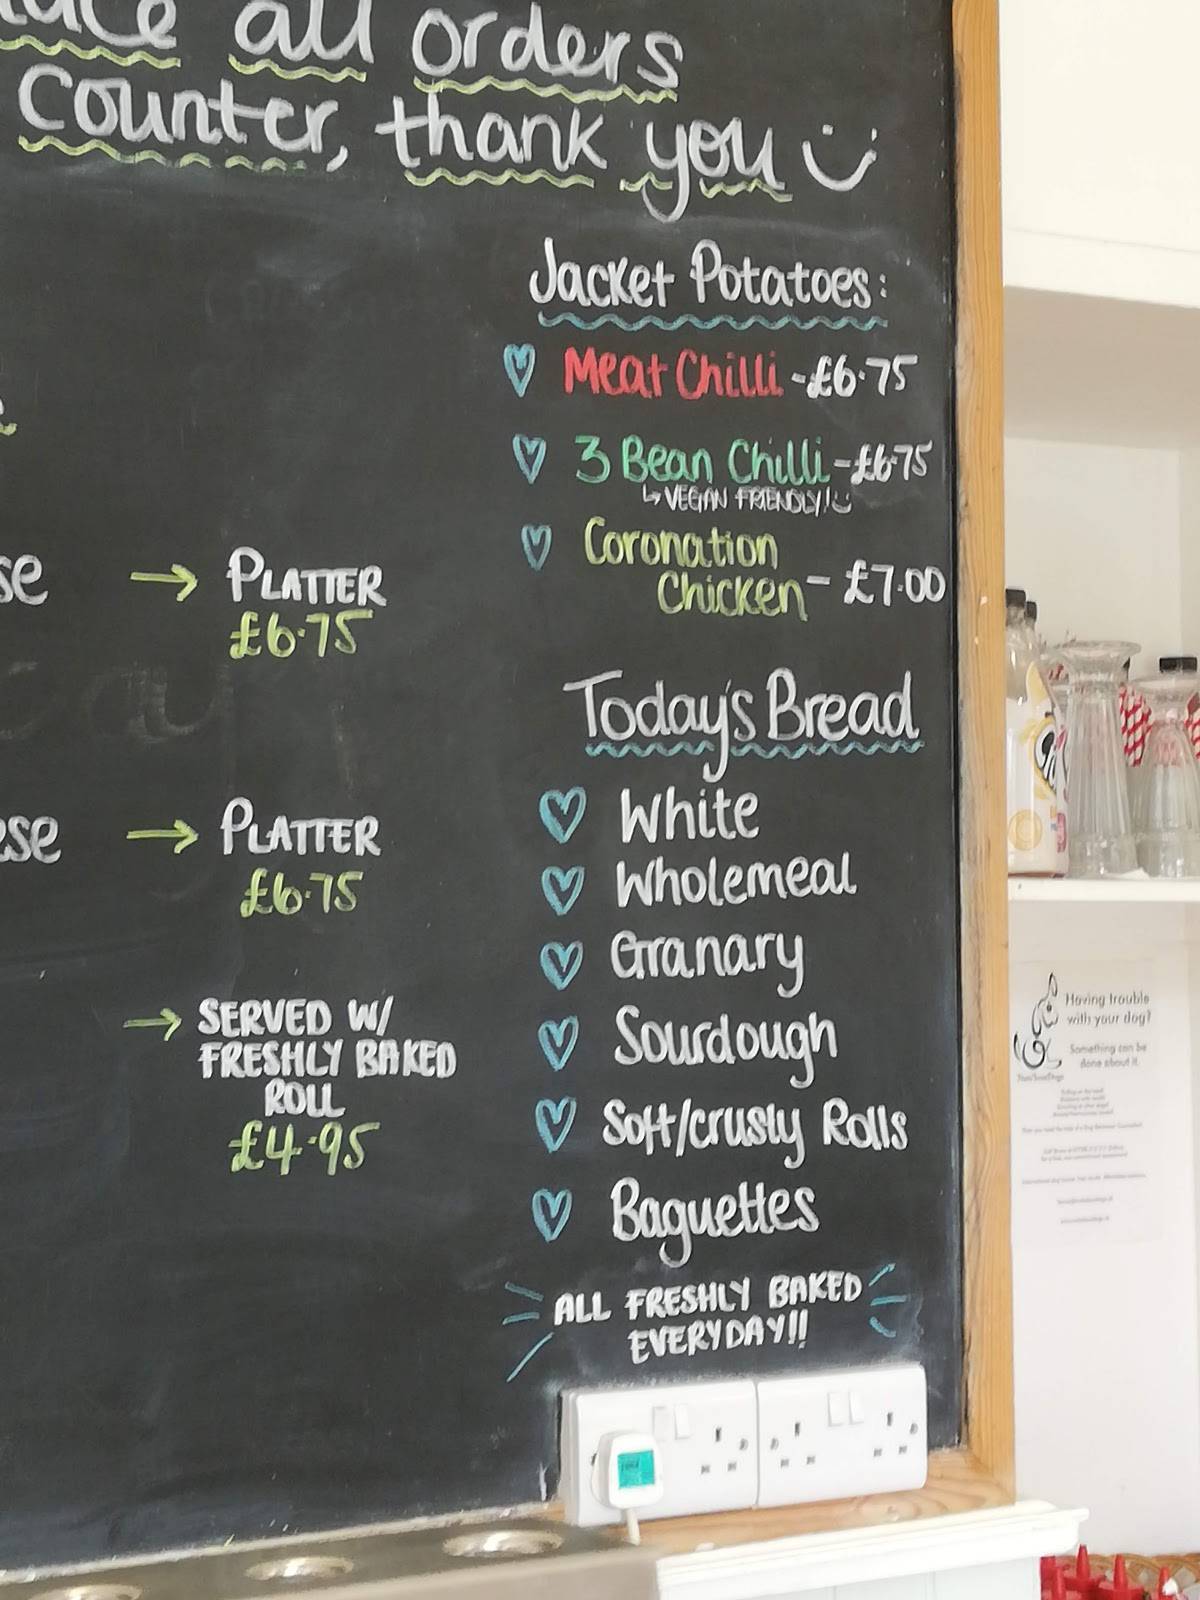 all orders
counter, thank you
Jacket Potatoes:
Meat Chilli - £6.75
3 Bean Chilli - £6.75
↳ VEGAN FRIENDLY!
Coronation
Chicken - £7.00
se → PLATTER
£6.75
ese → PLATTER
£6.75
→ SERVED W/
FRESHLY BAKED
ROLL
£4.95
Today's Bread
White
Wholemeal
Granary
Sourdough
Soft/crusty Rolls
Baguettes
ALL FRESHLY BAKED
EVERYDAY!!
Having trouble
with your dog?
Something can be
done about it.